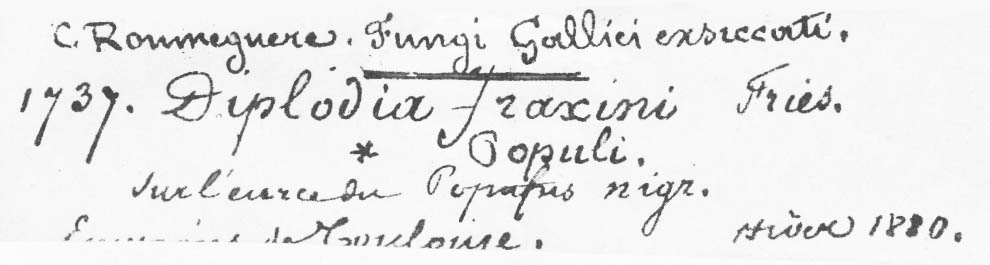 C. Roumeguere. Fungi Gallici exsiccati.
1737. Diplodia fraxini Fries.
* Populi.
sur l'eurce du Populus nigr.
Environs de Toulouse. Hiver 1880.